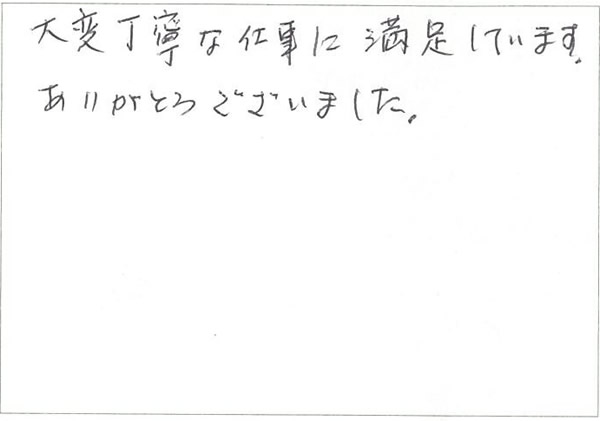 大変丁寧な仕事に満足しています。
ありがとうございました。